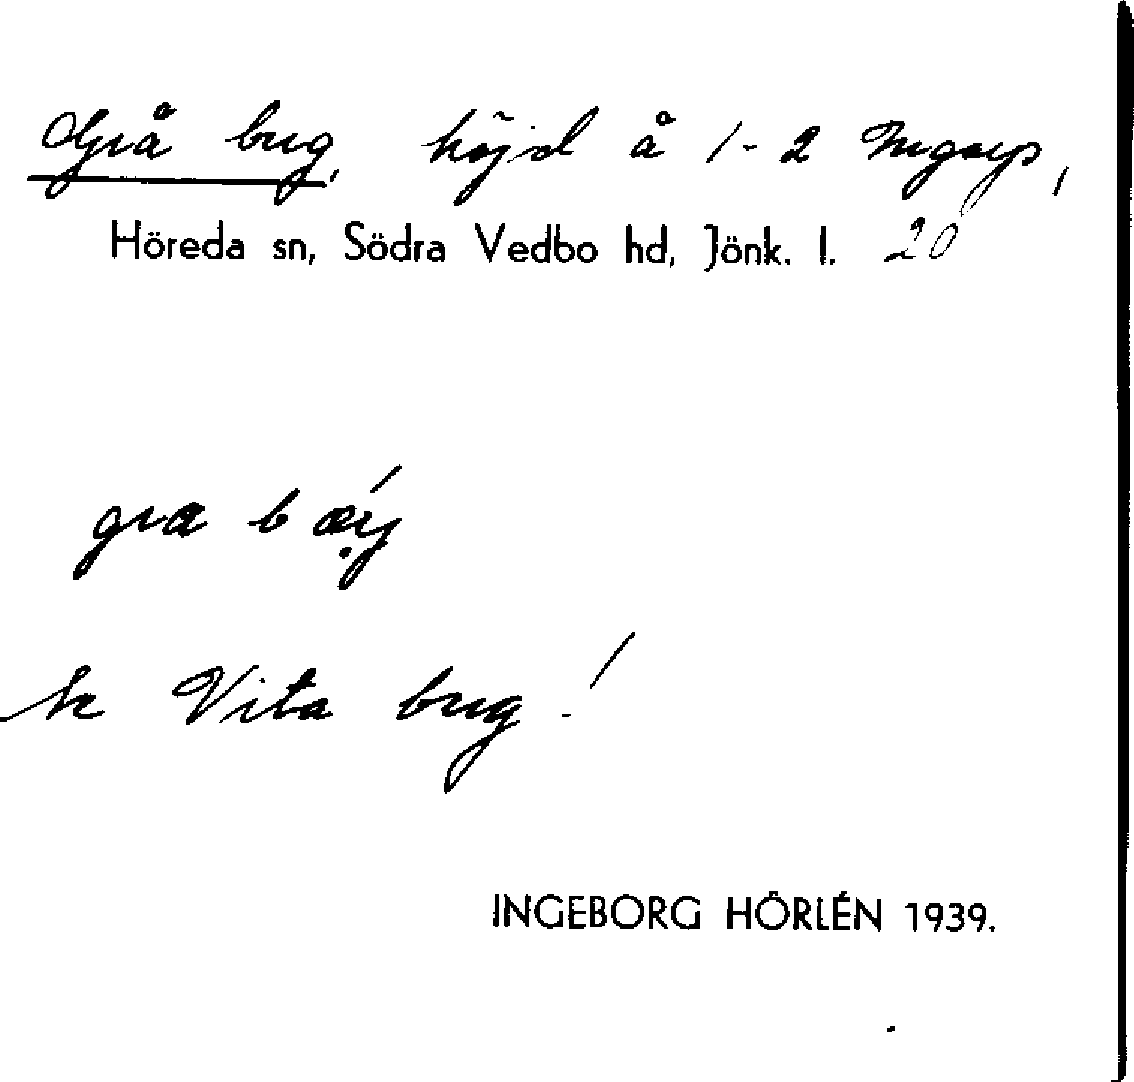 Grå bug, höjd å 1-2 Ingarp,
Höreda sn, Södra Vedbo hd, Jönk. l. 20
gra b
se Vita bug!
INGEBORG HÖRLÉN 1939.